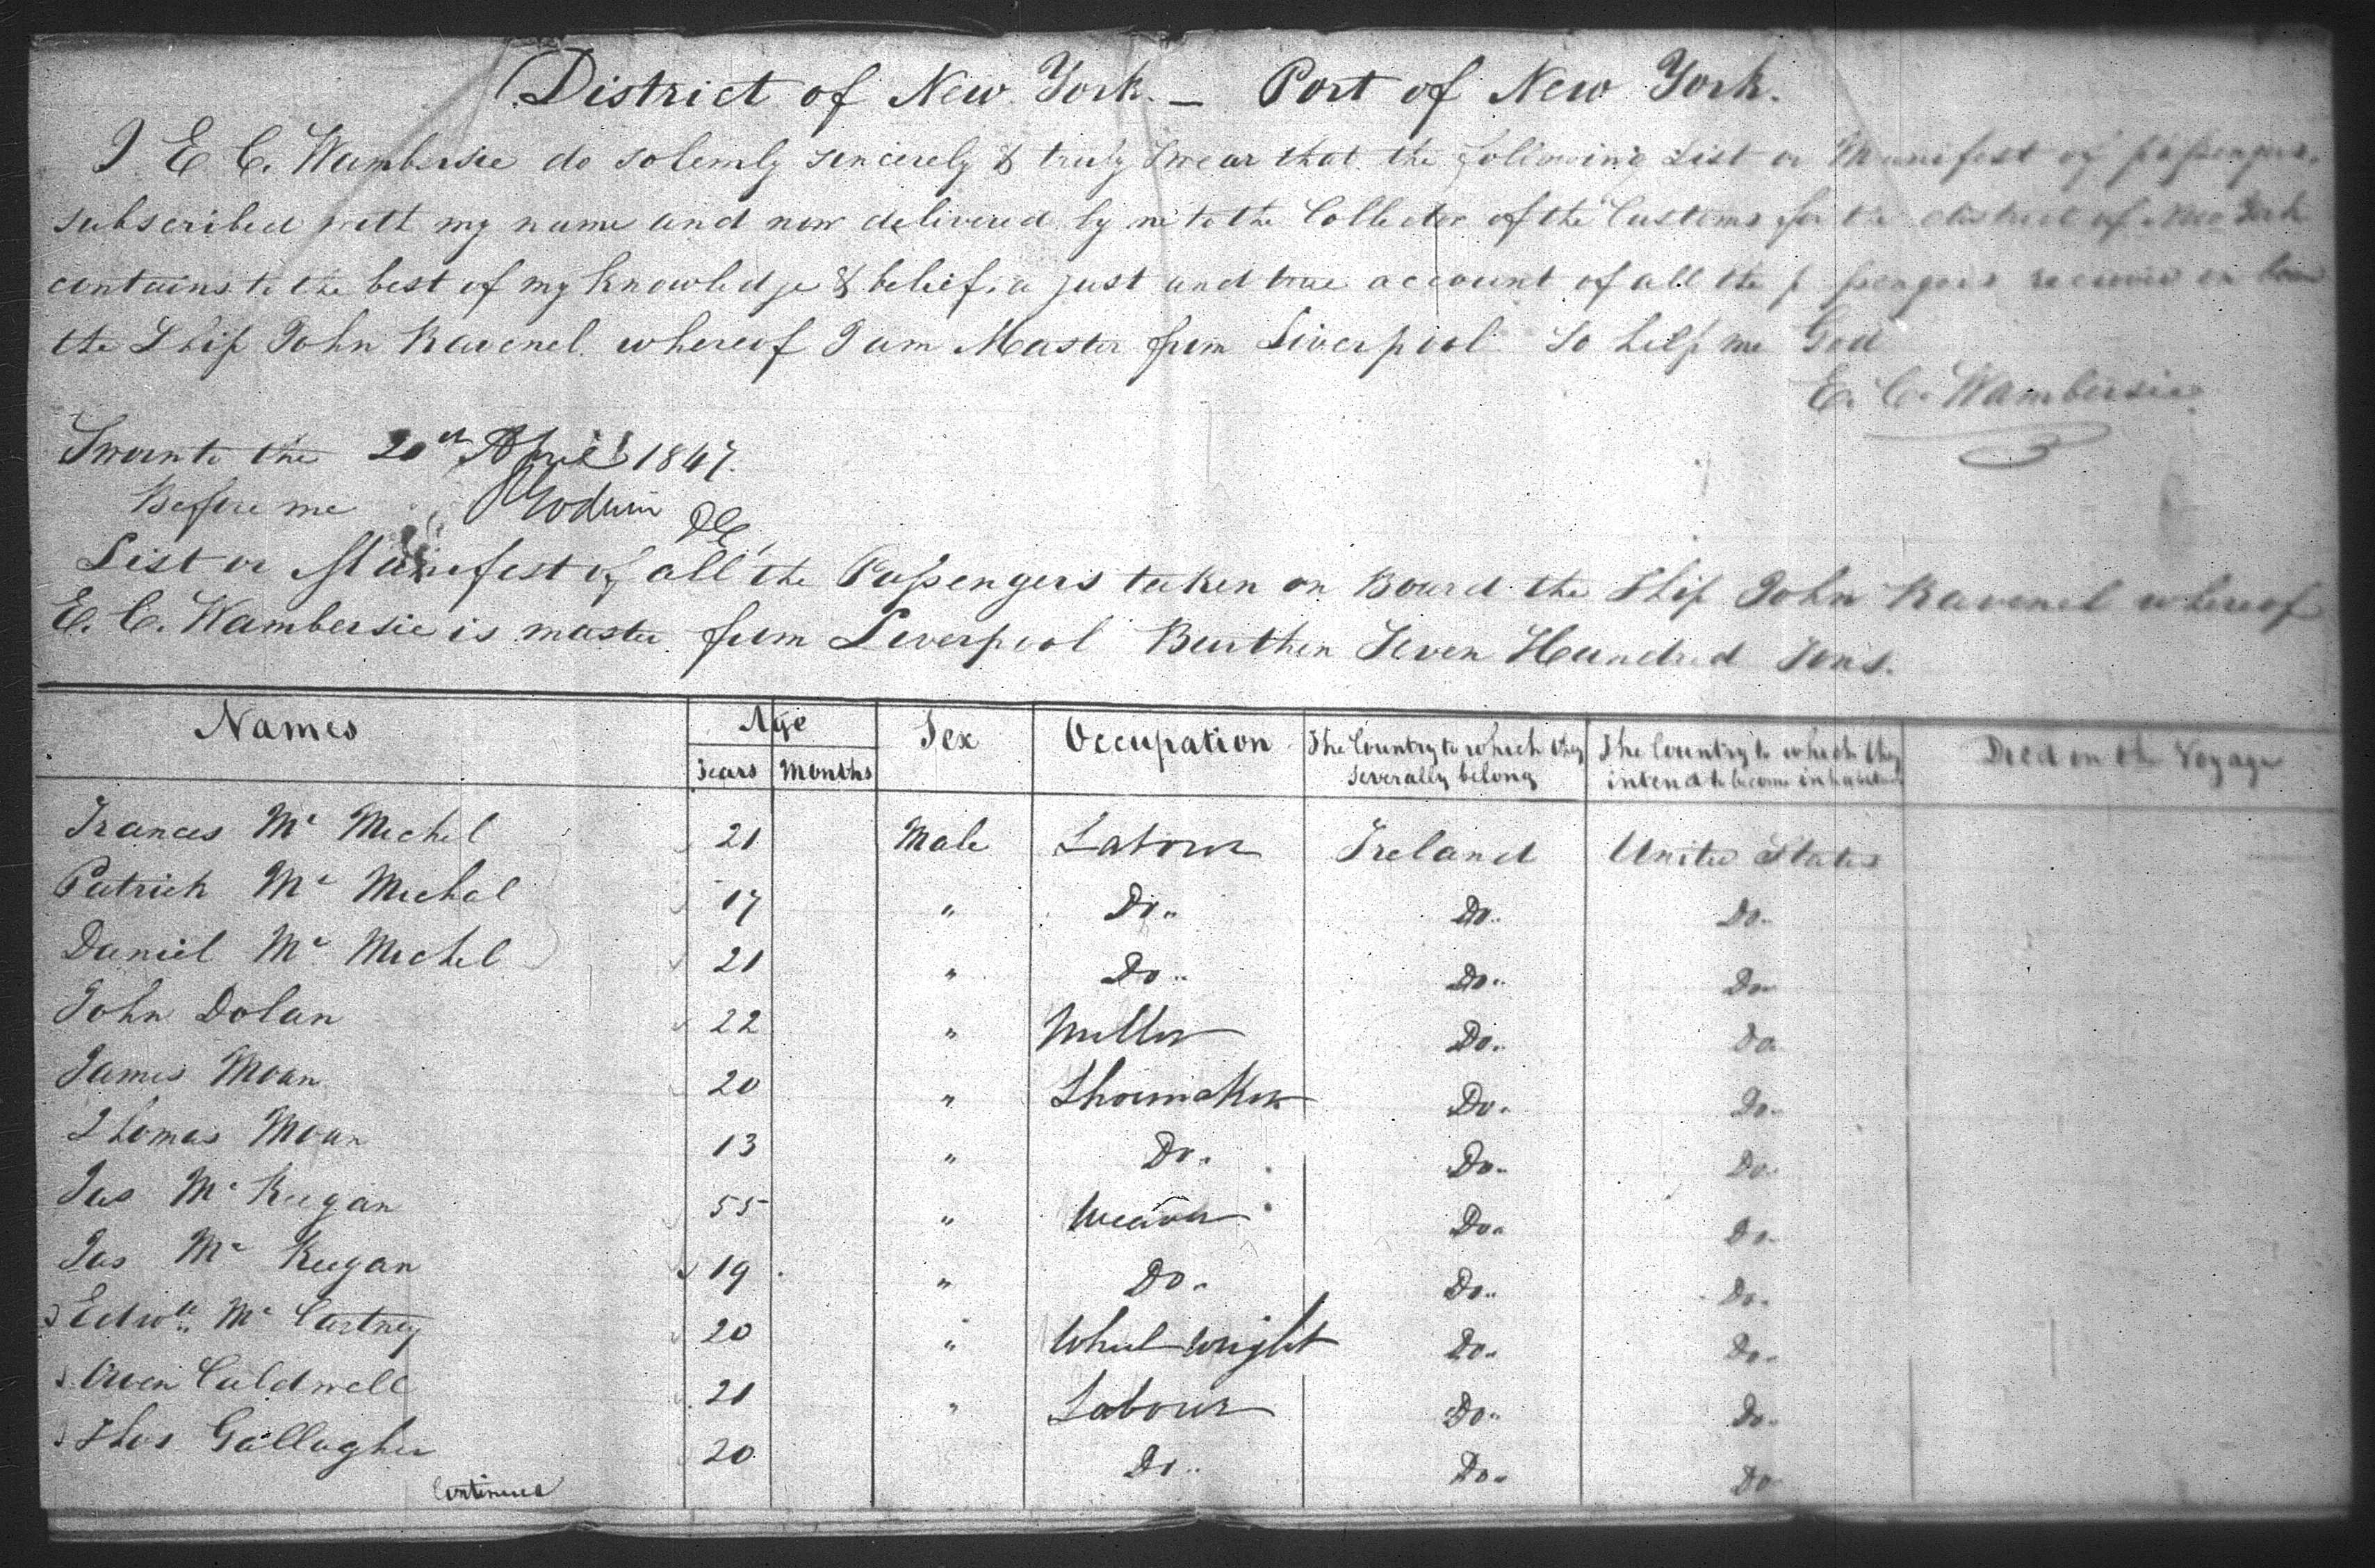 District of New York. — Port of New York.
I E. C. Wambersie do solemly sincerely & truly swear that the following List or Manifest of passengers.
subscribed with my name and now delivered by me to the Collector of the Customs for the district of New York
contains to the best of my knowledge & belief, a just and true account of all the passengers received on board
the Ship John Ravenel whereof I am Master from Liverpool So help me God
E. C. Wambersie
Sworn to the 20th April 1847.
Before me
List or Manifest of all the Passengers taken on Board the Ship John Ravenel whereof
E. C. Wambersie is master from Liverpool Burthen Seven Hundred Tons.
Names Age Sex Occupation The Country to which they severally belong The Country to which they intend to become inhabitants Died on the Voyage
Years Months
Frances Mc Michel 21 Male Labour Ireland United States
Patrick Mc Michal 17 " Do.. Do.. Do..
Daniel Mc Michel 21 " Do.. Do.. Do..
John Dolan 22 " Miller Do.. Do
James Moan 20 " Shoemaker Do.. Do..
Thomas Moan 13 " Do.. Do.. Do..
Jas Mc Keegan 55 " Weaver Do.. Do..
Jas Mc Keegan 19 " Do.. Do.. Do..
Edwd. Mc Cartney 20 " Wheel wright Do.. Do..
Owen Caldwell 21 " Labour Do.. Do..
Thos Gallagher 20 Do.. Do.. Do
Continued